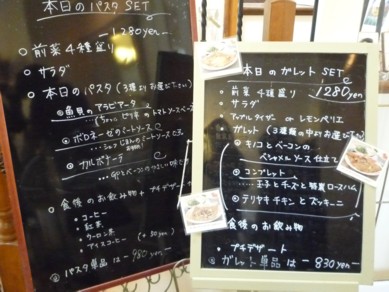 本日のパスタ SET
-1280yen-
○前菜4種盛り
○サラダ
○本日のパスタ(3種よりお選び下さい)
①魚貝のアラビアータ
②ボロネーゼのミートソース
③カルボナーラ
○食後のお飲み物+プチデザート
・コーヒー
・紅茶
・ウーロン茶
・アイスコーヒー (+50yen)
◎パスタ単品は -980yen-
本日のガレット SET
1280yen
○前菜4種盛り
○サラダ
アップルタイザー or レモンペリエ
ガレット(3種類の中よりお選び下さい)
①キノコとベーコンの
ベシャメルソース仕立て
②コンプレット
・・・玉子とチーズと特製ロースハム
③テリヤキチキンとズッキーニ
食後のお飲み物
・プチデザート
◎ガレット単品は -830yen-